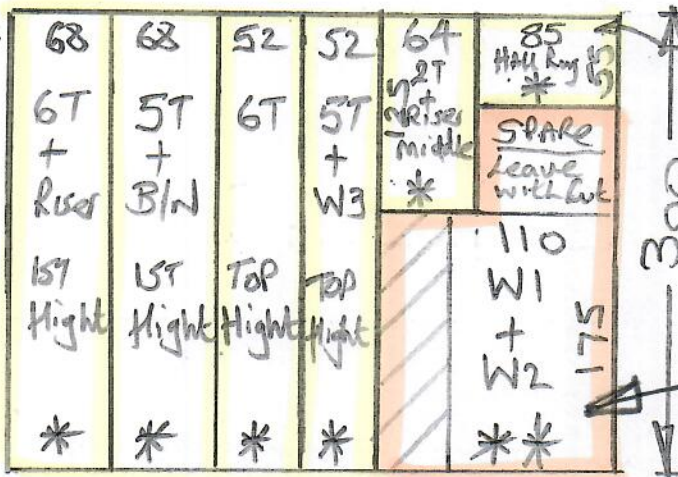 68
6T
+
Riser
1ST
Hight
*
68
5T
+
B/N
1ST
Hight
*
52
6T
TOP
Hight
*
52
5T
+
W3
TOP
Hight
*
64
2T
+
Riser
middle
*
85
Hall Rug
*
55
SPARE
Leave
with Cut
110
W1
+
W2
**
175
300